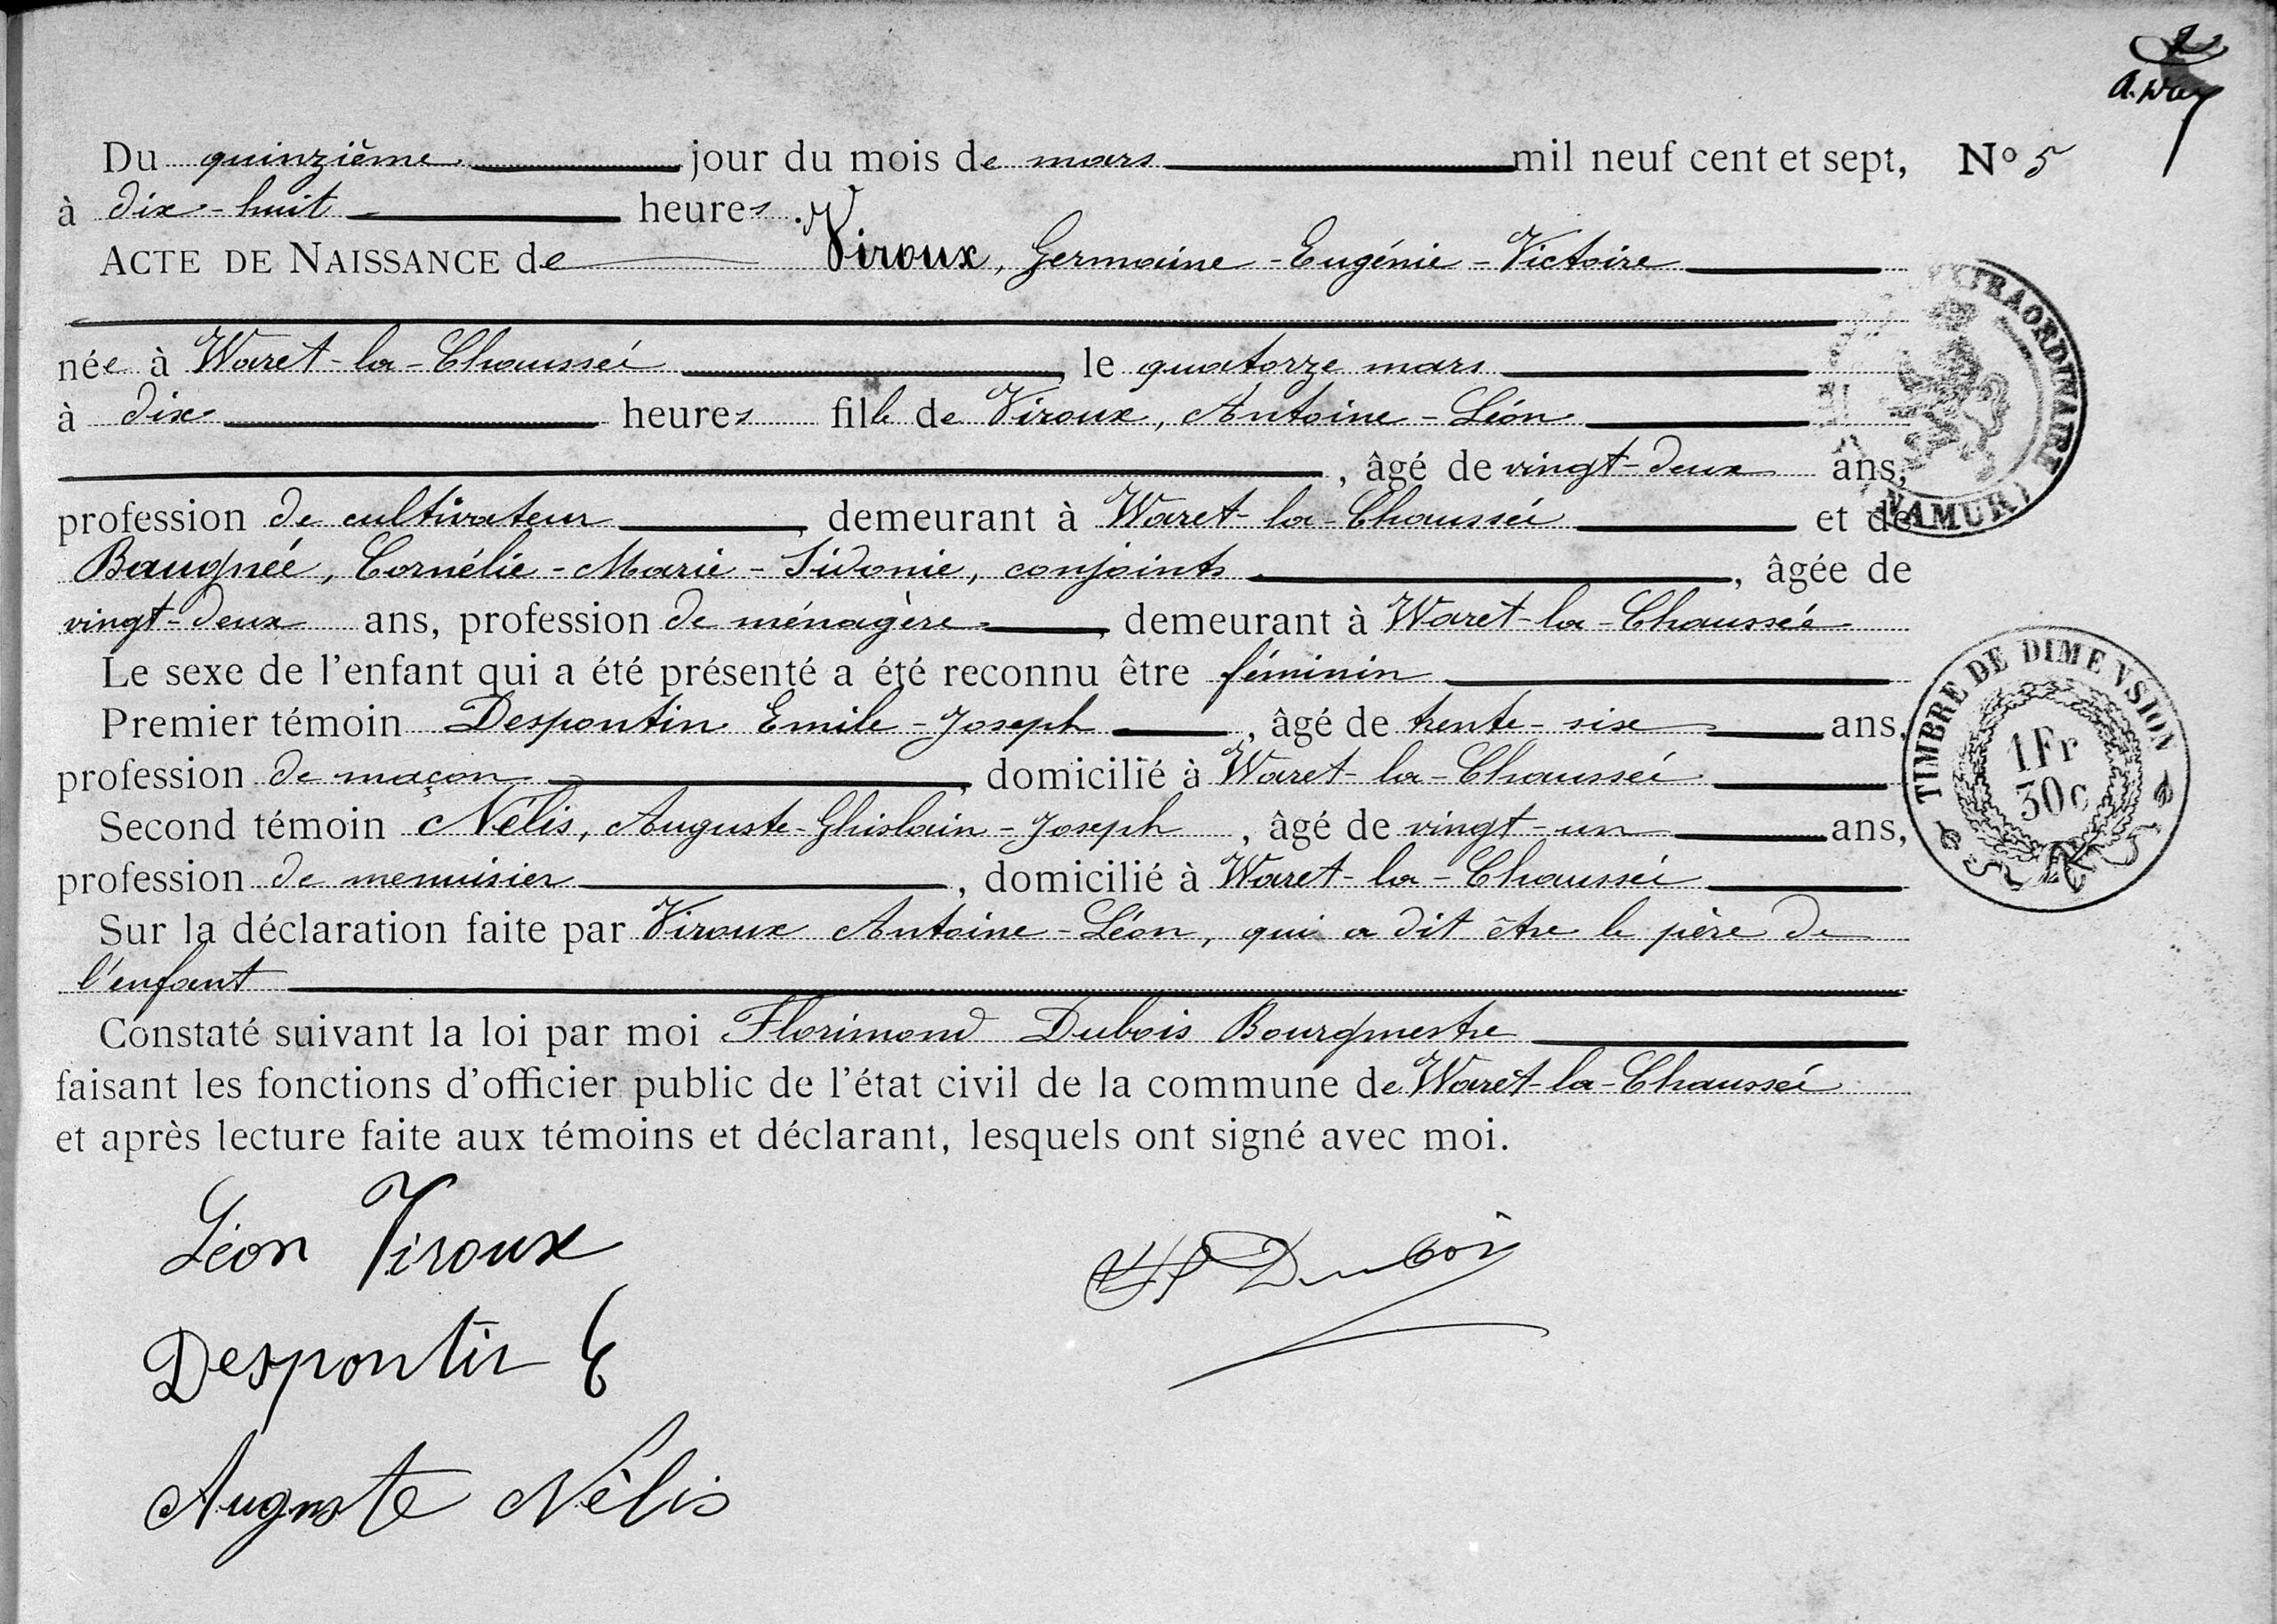 Du quinzième jour du mois de mars mil neuf cent et sept, N° 5
à dix-huit heures.
ACTE DE NAISSANCE de Viroux, Germaine-Eugénie-Victoire
née à Waret-la-Chaussée, le quatorze mars
à dix heures fille de Viroux, Antoine-Léon
, âgé de vingt-deux ans,
profession de cultivateur, demeurant à Waret-la-Chaussée et de
Baugnée, Cornélie-Marie-Sidonie, conjoints, âgée de
vingt-deux ans, profession de ménagère, demeurant à Waret-la-Chaussée
Le sexe de l'enfant qui a été présenté a été reconnu être féminin
Premier témoin Despontin Emile-Joseph, âgé de trente-six ans,
profession de maçon, domicilié à Waret-la-Chaussée
Second témoin Nélis, Auguste-Ghislain-Joseph, âgé de vingt-un ans,
profession de menuisier, domicilié à Waret-la-Chaussée
Sur la déclaration faite par Viroux Antoine-Léon, qui a dit être le père de
l'enfant
Constaté suivant la loi par moi Florimond Dubois Bourgmestre
faisant les fonctions d'officier public de l'état civil de la commune de Waret-la-Chaussée
et après lecture faite aux témoins et déclarant, lesquels ont signé avec moi.
Léon Viroux
Dubois
Despontin E
Auguste Nélis
EXTRAORDINAIRE
(NAMUR)
TIMBRE DE DIMENSION
1Fr
30c